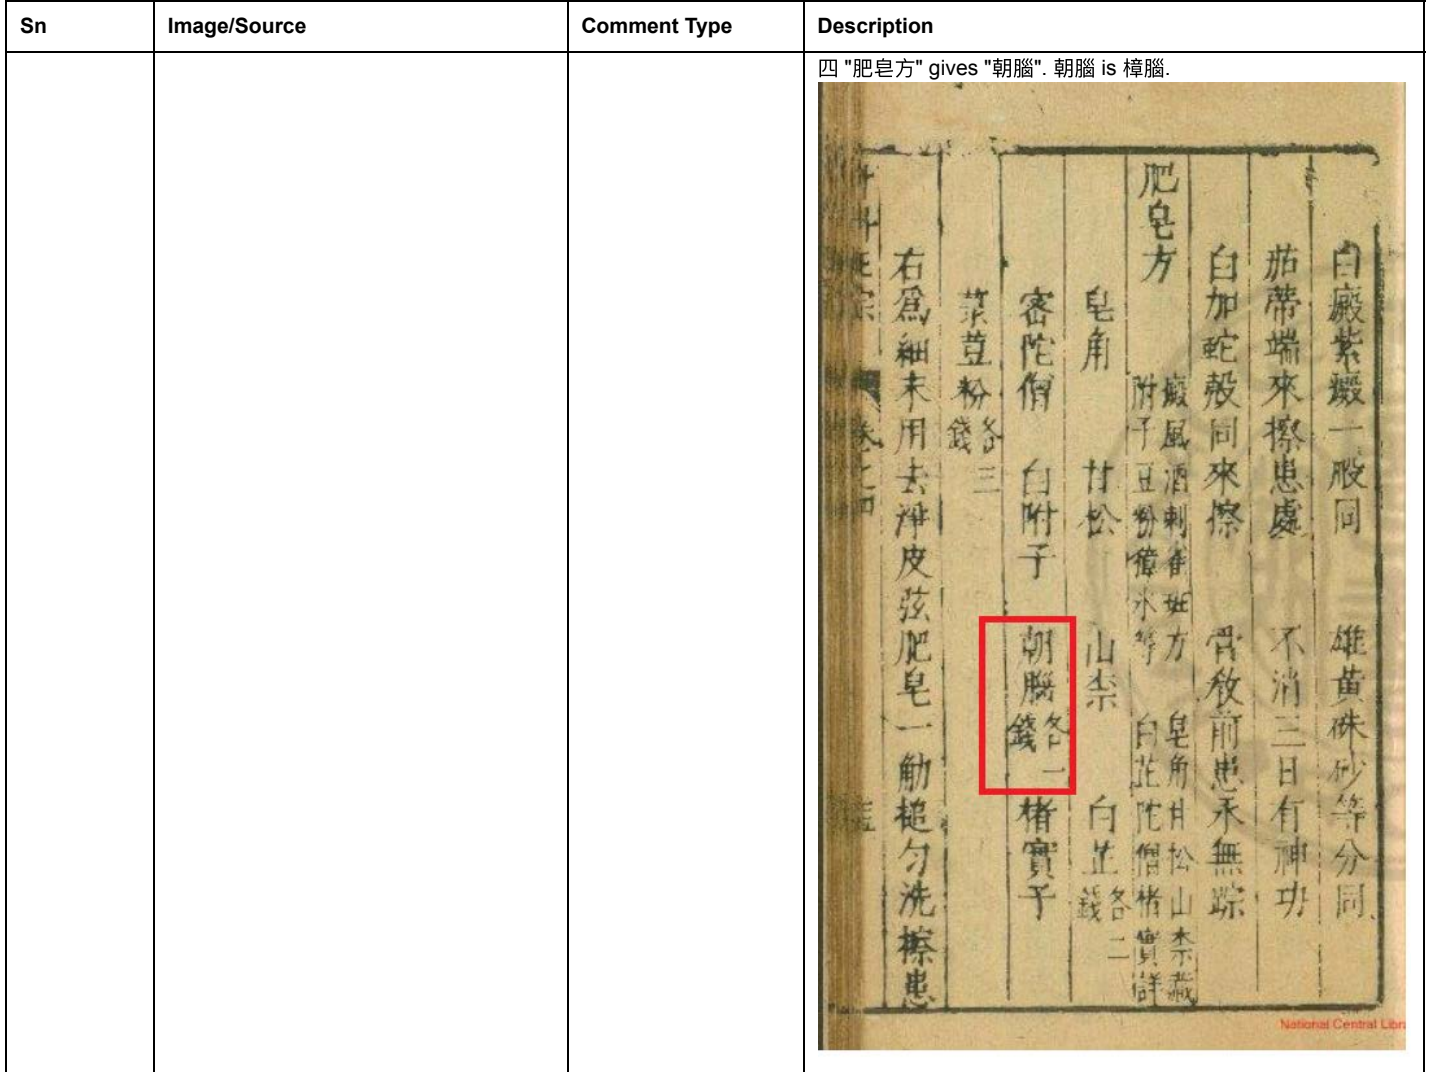 Sn Image/Source Comment Type Description
四 "肥皂方" gives "朝腦". 朝腦 is 樟腦.
白癜紫癜一般同 雄黃硃砂等分同
茄蒂端來擦患處 不消三日有神功
白加蛇殼同來擦 管敘前患永無踪
肥皂方
癜風酒刺雀斑方 皂角甘松山柰藏
附子豆粉樟氷等 白芷陀僧楮實詳
皂角 甘松 山柰 白芷各二錢
密陀僧 白附子 朝腦各一錢 楮實子
菉荳粉各三錢
右爲細末用去淨皮弦肥皂一觔搥勻洗擦患
National Central Libr